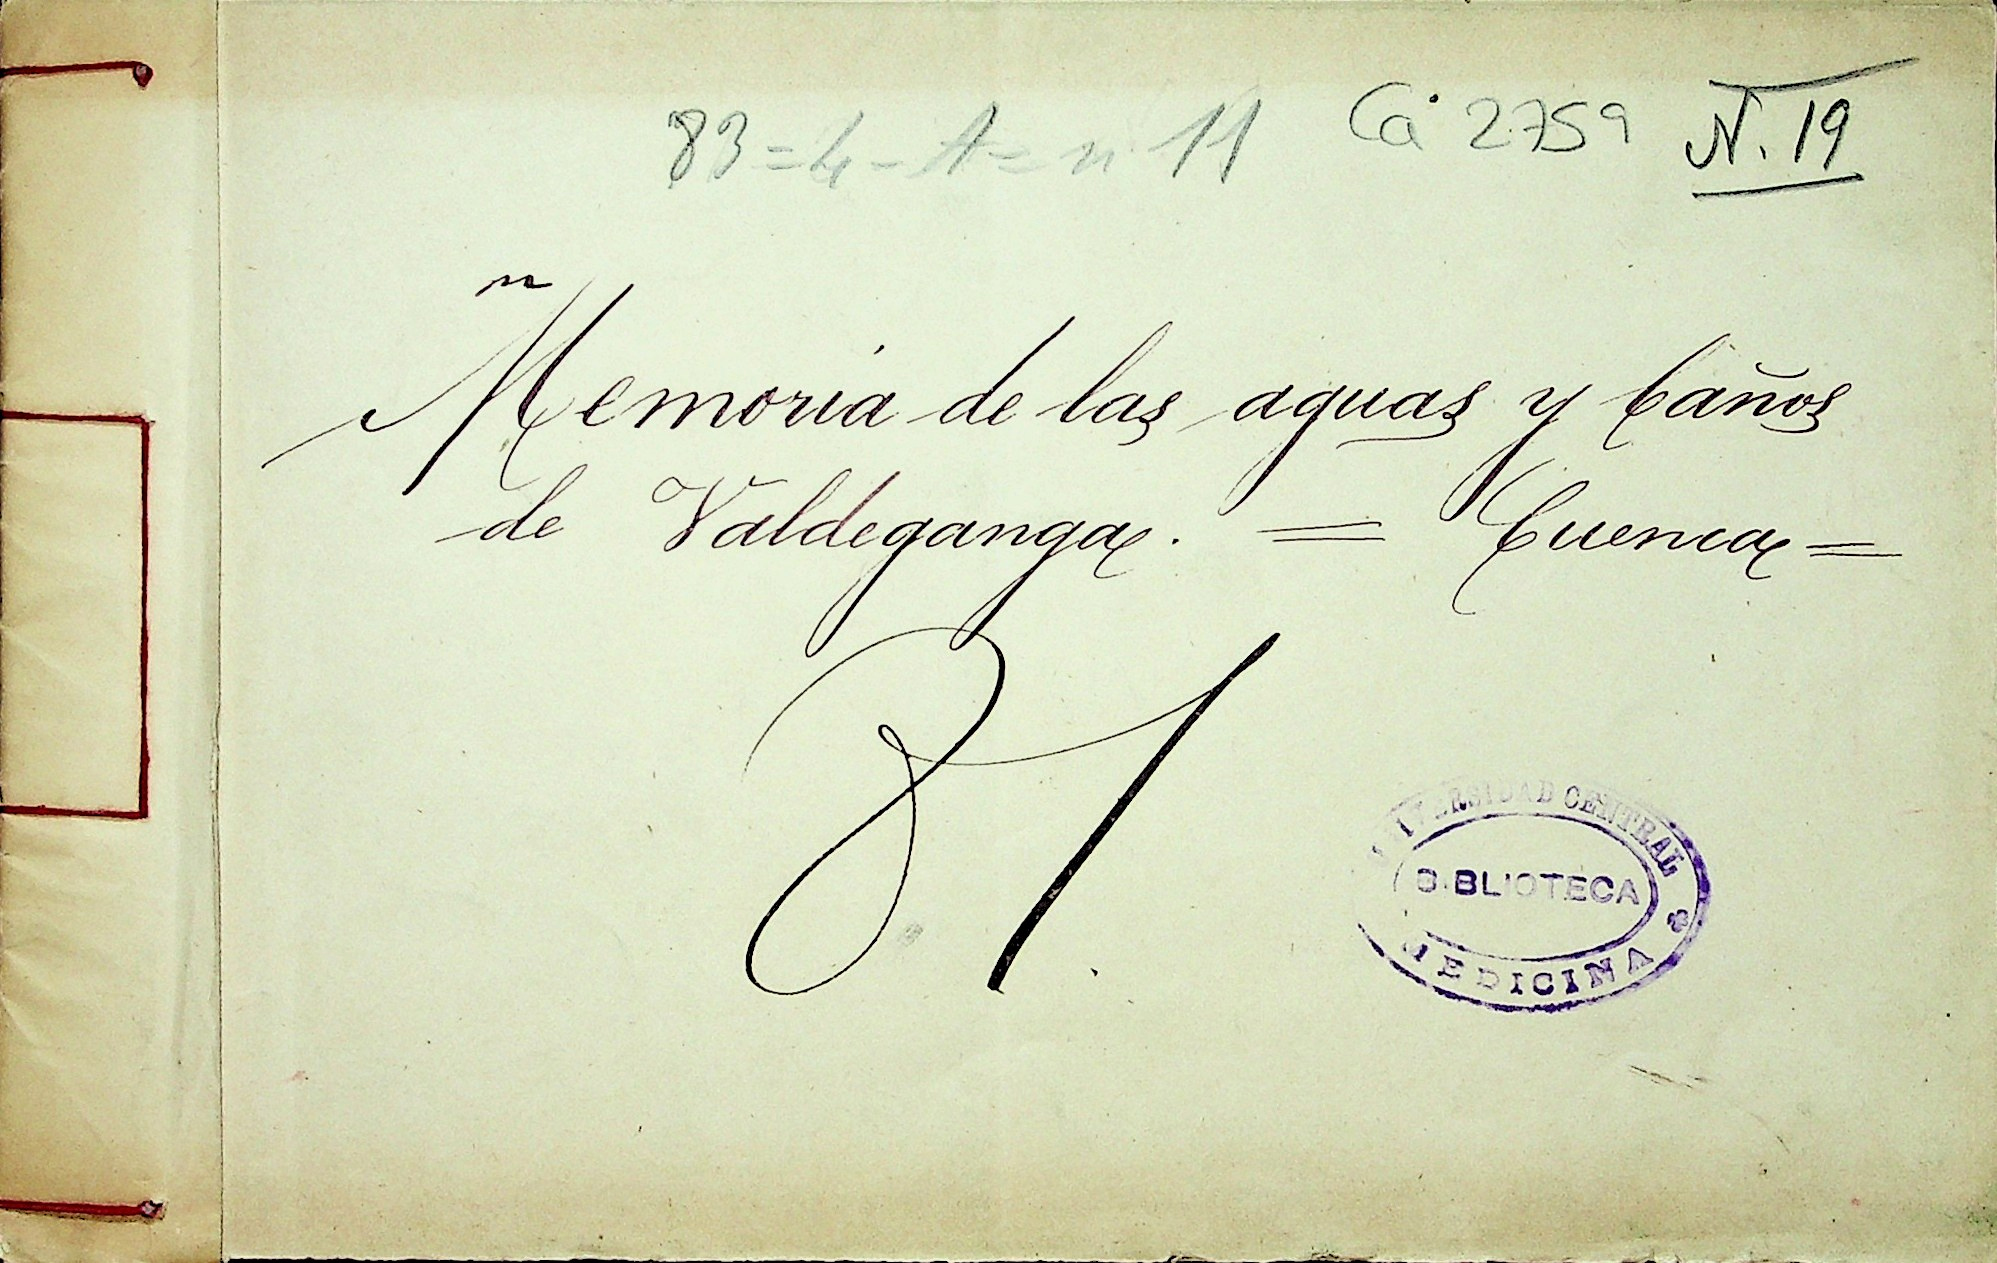 83=4-A=n 11 Ca 2759 N. 19
Memoria de las aguas y baños
de Valdeganga. = Cuenca =
31
UNIVERSIDAD CENTRAL
BIBLIOTECA
MEDICINA